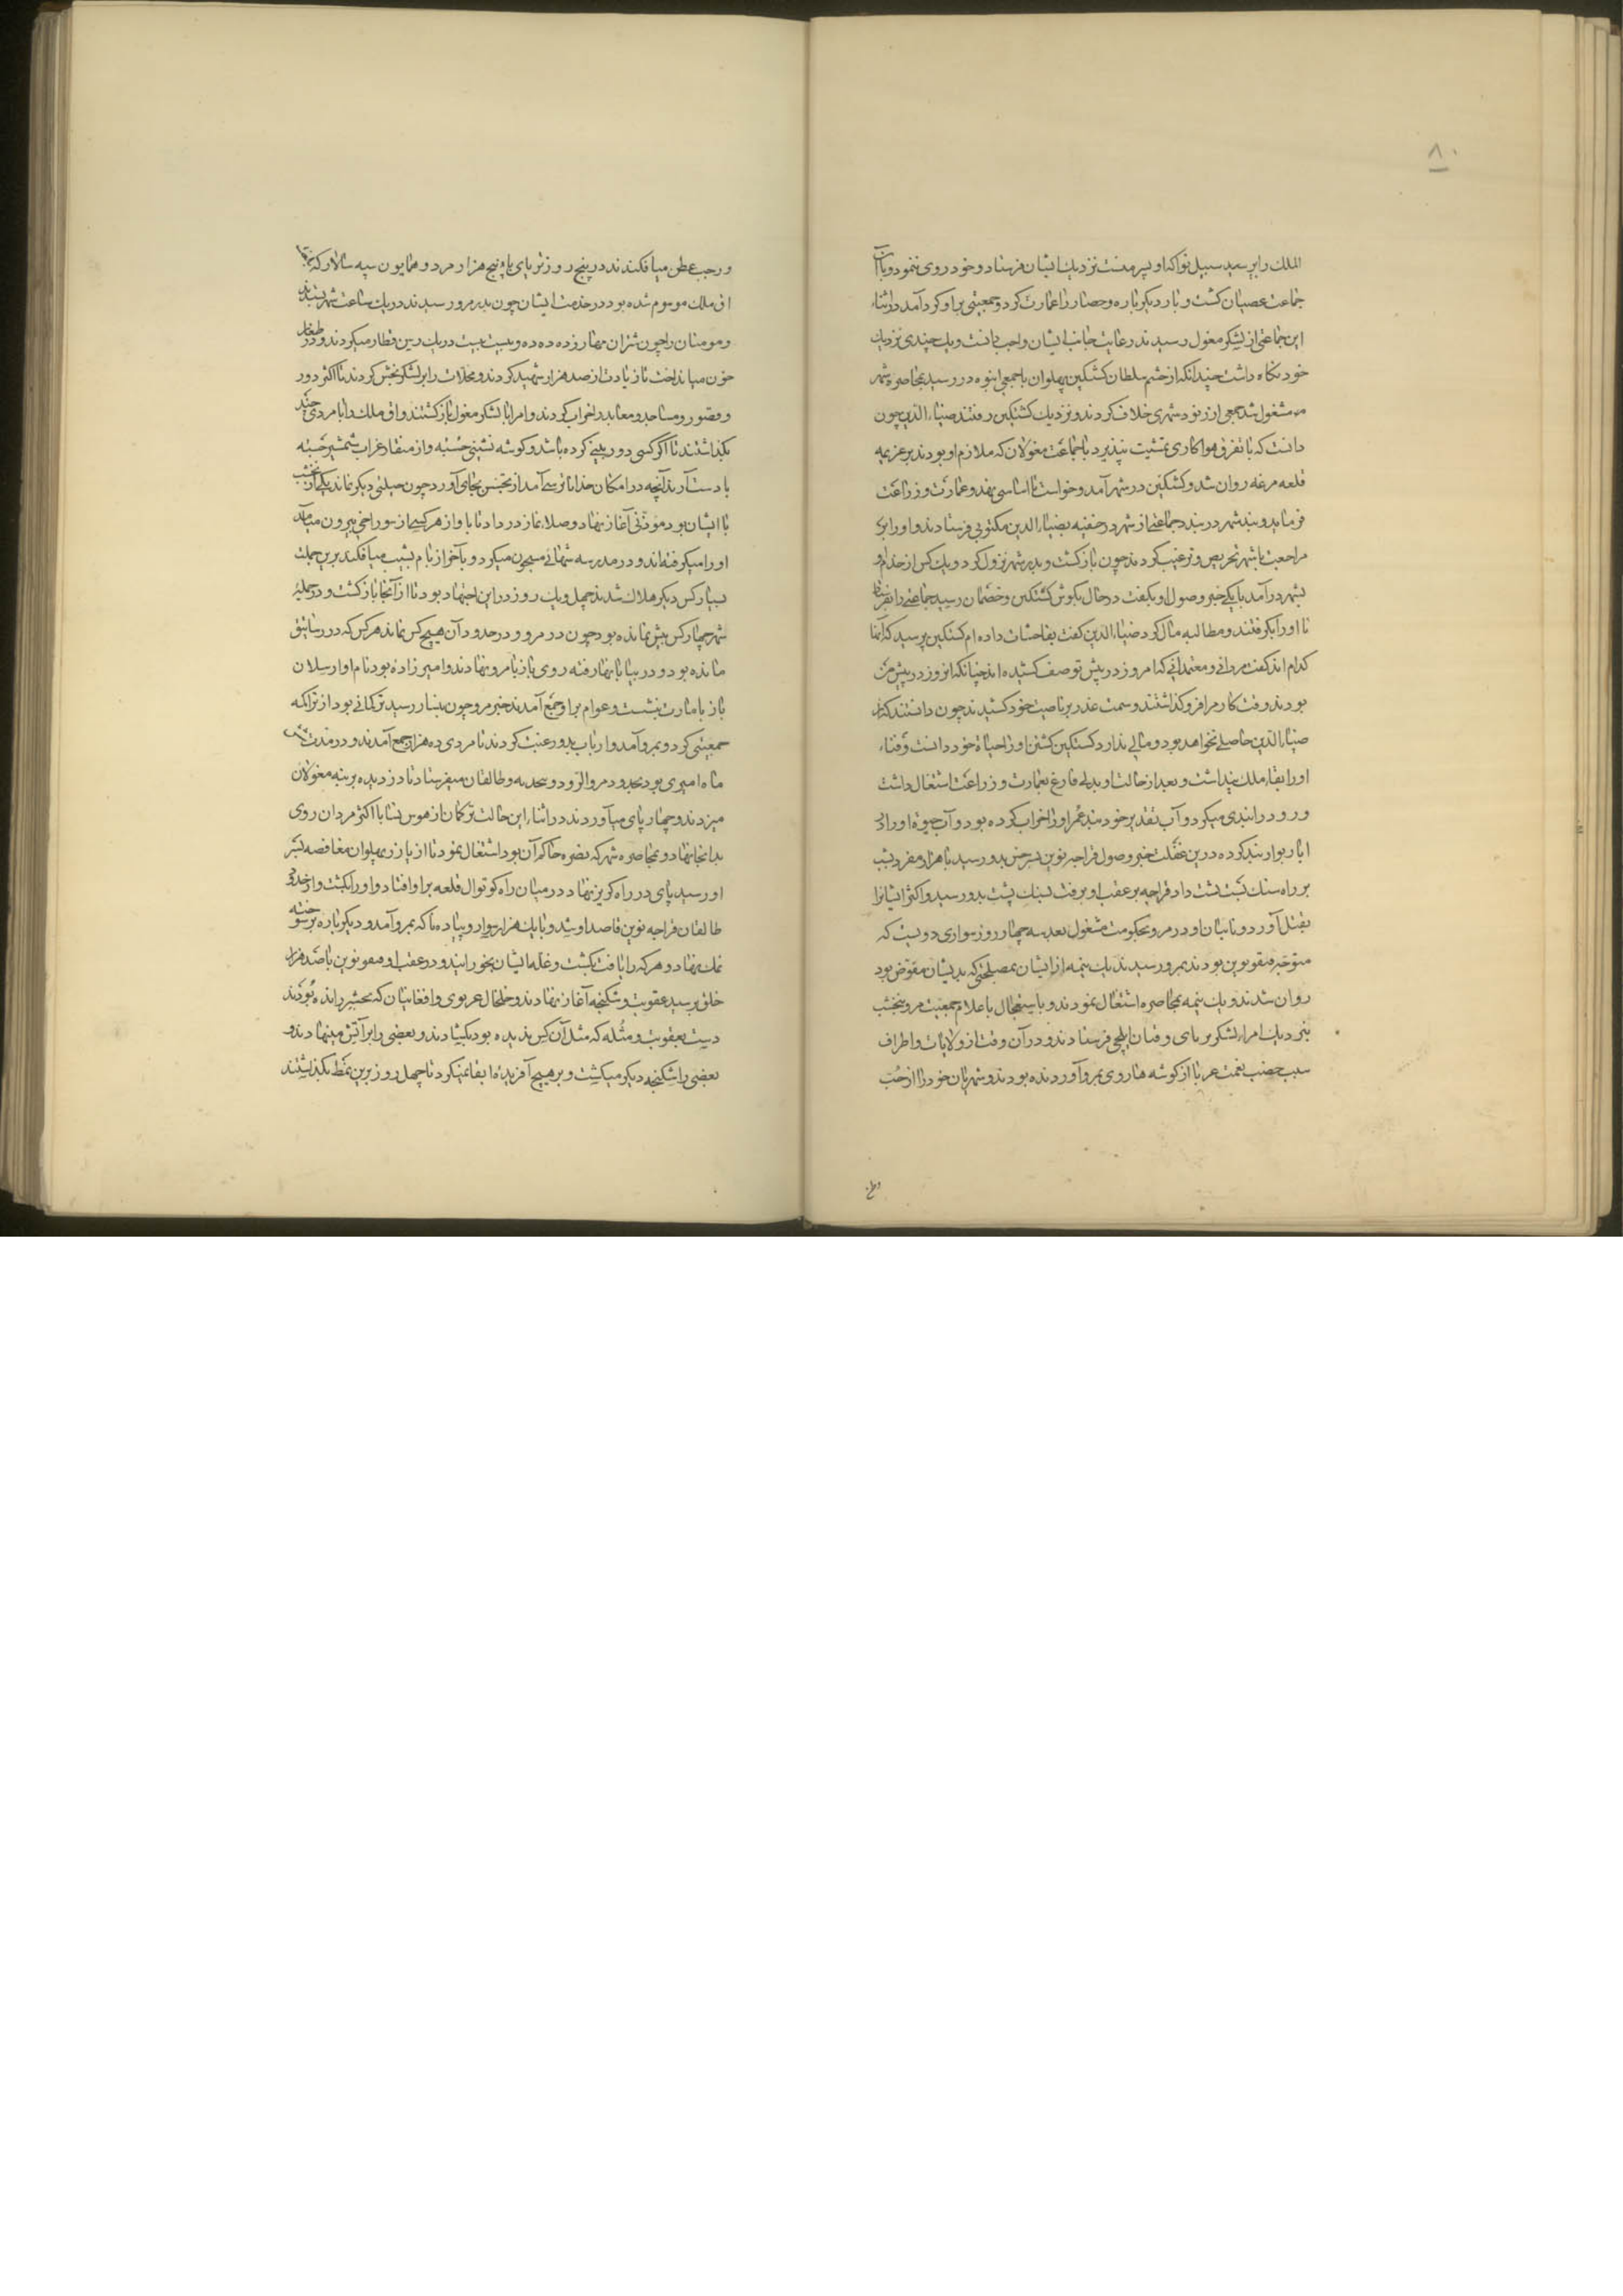 ۸۰
الملك را بر سبیل نوا که او پسر منست نزدیك ایشان فرستاد و خود روی ننمود و با آن
جماعت عصیان کشت و بار دیکر باره و حصار را عمارت کرد و جمعیتی بر او کرد آمد در اثناء
این جماعتی از لشکر مغول رسیدند رعایت جانب ایشان واجب دانست و یك چندی نزدیك
خود نکاه داشت چندانکه از حشم سلطان کشتکین پهلوان با جمعی انبوه در رسید بمحاصره شهر
مشغول شد جمعی از رنود شهری خلاف کردند و نزدیك کشتکین رفتند ضیاء الدین چون
دانست که با تفرق هوا کاری تمشیت نپذیرد با جماعت مغولان که ملازم او بودند بر عزیمه
قلعه مرغه روان شد و کشتکین در شهر آمد و خواست تا اساسی نهد و عمارت و زراعت
فرماید و بند شهر در بندد جماعتی از شهر در خفیه بضیاء الدین مکتوبی فرستادند و او را بر
مراجعت با شهر تحریص و ترغیب کردند چون بازکشت و بدر شهر نزول کرد و یك کس از خدام او
بشهر درآمد با یکی خبر وصول او بکفت در حال بکوش کشتکین و خصمان رسید جماعتی را بفرستاد
تا او را بکرفتند و مطالبه مال کرد ضیاء الدین کفت بفاحشات داده ام کشتکین پرسید که آنها
کدام اند کفت مردانی و معتمدانی که امروز در پیش تو صف کشیده اند چنانکه آن روز در پیش من
بودند وقت کار مرا فرو کذاشتند و سمت غدر بر ناصیت خود کشیدند چون دانستند که از
ضیاء الدین حاصلی نخواهد بود و مالی ندارد کشتکین کشتن او را حیاة خود دانست و فناء
او را بقاء ملك پنداشت و بعد از حالت او بدلی فارغ بعمارت و زراعت اشتغال داشت
و رود را بندی میکرد و آب تقدیر خود بند عمر او را خراب کرده بود و آب حیوة او را در
ابار بوار بند کرده درین غفلت خبر وصول قراجه نوین بسرخس بدو رسید با هزار مفرد شب
بر راه سنك پشت پشت داد قراجه بر عقب او برفت بسنك پشت بدو رسید و اکثر ایشانرا
بقتل آورد و نایبان او در مرو بحکومت مشغول بعد سه چهار روز سواری دویست که
متوجه قتقو نوین بودند بمرو رسیدند یك نیمه از ایشان بمصلحتی که بدیشان مفوض بود
روان شدند و یك نیمه بمحاصره اشتغال نمودند و باستعجال باعلام جمعیت مرو بنخشب
بنزدیك امراء لشکر تربای و قبان ایلچی فرستادند و در آن وقت از ولایات و اطراف
سبب خصب نعمت غربا از کوشه ها روی بمرو آورده بودند و شهریان خود را از حب
و رجب عطن میافکندند در پنج روز تربای با پنج هزار مرد و همایون سپه سالار که بنام
اق ملك موسوم شده بود در خدمت ایشان چون بدر مرو رسیدند در یك ساعت شهر بستدند
و مومنان را چون شتران مهار زده ده ده و بیست بیست در یك رسن قطار میکردند و در طغار
خون میانداخت تا زیادت از صد هزار شهید کردند و محلات را بر لشکر بخش کردند تا اکثر دور
و قصور و مساجد و معابد را خراب کردند و امرا با لشکر مغول بازکشتند و اق ملك را با مردی چند
بکذاشتند تا اکر کسی دوربینی کرده باشد و کوشه نشینی جسته و از منقاد غراب شمشیر جسته
با دست آرند آنچه در امکان خدا ناترسی آمد از تجسس بجای آورد چون حیلتی دیکر نماند یکی از نخشب
با ایشان بود موذنی آغاز نهاد و صلاء نماز در داد تا باواز هر کسی از سوراخی بیرون میآمد
او را میکرفته اند و در مدرسه شهابی مسجون میکرد و بآخر از بام بشیب میافکند برین جملت
بسیار کس دیکر هلاك شدند چهل و یك روز در این اجتهاد بود تا از آنجا بازکشت و در جمله
شهر چهار کس بیش نمانده بود چون در مرو و در حدود آن هیچ کس نماند هر کس که در رساتیق
مانده بود و در بیابانها رفته روی باز با مرو نهادند و امیر زاده بود نام او ارسلان
باز بامارت بنشست و عوام بر او جمع آمدند خبر مرو چون بنسا رسید ترکمانی بود از تراکمه
جمعیتی کرد و بمرو آمد و ارباب بدو رغبت کردند تا مردی ده هزار جمع آمدند و در مدت شش
ماه امیری بود بحدود مرو الرود و پنجدیه و طالقان میفرستاد تا دزدیده بر بنه مغولان
میزدند و چهار پای میآوردند در اثناء این حالت ترکمان از هوس نسا با اکثر مردان روی
بدانجا نهاد و بمحاصره شهر که نصره حاکم آن بود اشتغال نمود تا از یازر پهلوان مغافصه بسر
او رسید پای در راه کریز نهاد در میان راه کوتوال قلعه بر او افتاد و او را بکشت و از حدود
طالقان قراجه نوین قاصد او شد و با یك هزار سوار و پیاده ناکه بمرو آمد و دیکر باره بر سوخته
نمك نهاد و هر که را یافت بکشت و غله ایشان بخورانید و در عقب او قتقو نوین با صد هزار
خلق برسید عقوبت و شکنجه آغاز نهادند و خلجان غزنوی و افغانیان که بحشر رانده بودند
دست بعقوبت و مثله که مثل آن کس ندیده بود بکشادند و بعضی را بر آتش مینهادند و
بعضی را بشکنجه دیکر میکشت و بر هیچ آفریده ابقا نمیکرد تا چهل روز برین نمط بکذاشتند